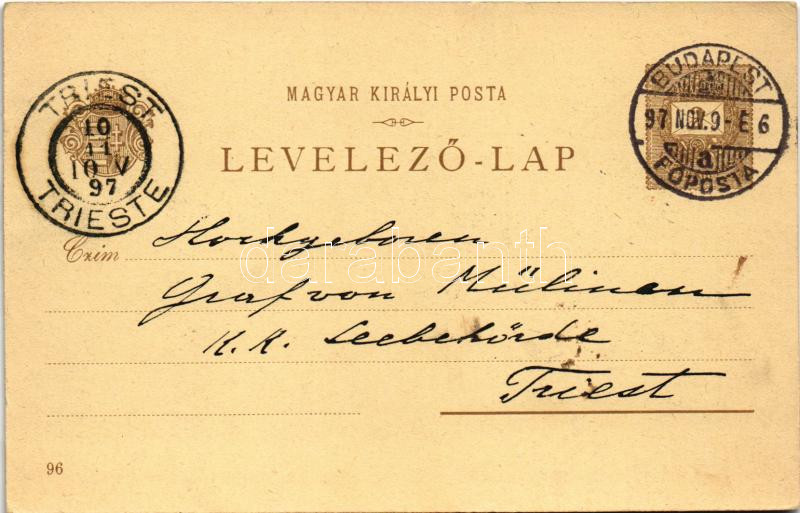 MAGYAR KIRÁLYI POSTA
LEVELEZŐ-LAP
TRIEST
10
11
10 V
97
TRIESTE
BUDAPEST
97 NOV. 9 - E 6
a
FŐPOSTA
Czim
Hochgeboren
Graf von Mülinen
K. K. Seebehörde
Triest
96
darabanth